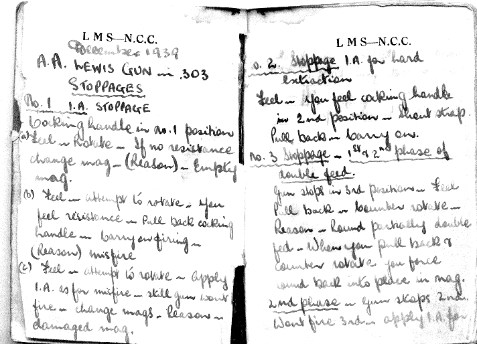 L M S—N.C.C.
December 1939
A.A. LEWIS GUN in .303
STOPPAGES
No. 1 I.A. STOPPAGE
Cocking handle in no. 1 position
(a) Feel — rotate — If no resistance
change mag — (Reason) — Empty
mag.
(b) Feel — attempt to rotate — you
feel resistance — Pull back cocking
handle — carry on firing —
(Reason) misfire
(c) Feel — attempt to rotate — apply
I.A. as for misfire — still gun wont
fire — change mags — Reason —
damaged mag.
L M S—N.C.C.
no. 2 Stoppage I.A. for hard
extraction
Feel — you feel cocking handle
in 2nd position — strap.
Pull back — carry on.
no. 3 Stoppage — 1st & 2nd phase of
double feed.
Gun stops in 3rd position — Feel
Pull back — counter rotate —
Reason — Round partially double
fed — When you pull back &
counter rotate you force
round back into place in mag.
2nd phase — gun stops 2nd.
Wont fire 3rd — apply I.A. for